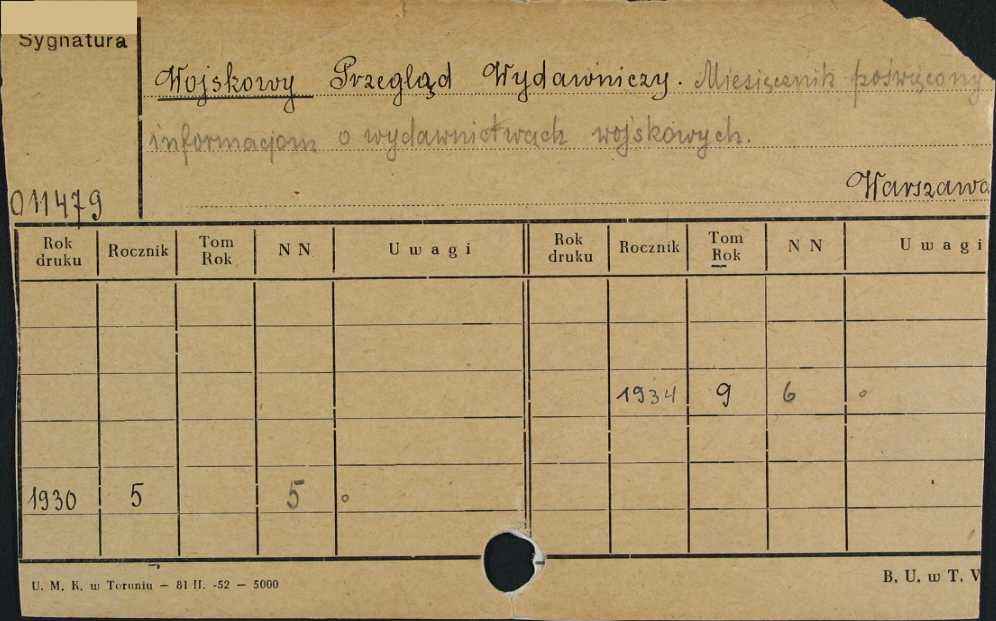 Sygnatura
Wojskowy Przegląd Wydawniczy. Miesięcznik poświęcony
informacjom o wydawnictwach wojskowych.
011479
Warszawa
Rok druku Rocznik Tom Rok N N Uwagi Rok druku Rocznik Tom Rok N N Uwagi
1934 9 6
1930 5 5
U. M. K. w Toruniu — 81 II. -52 — 5000
B. U. w T. V